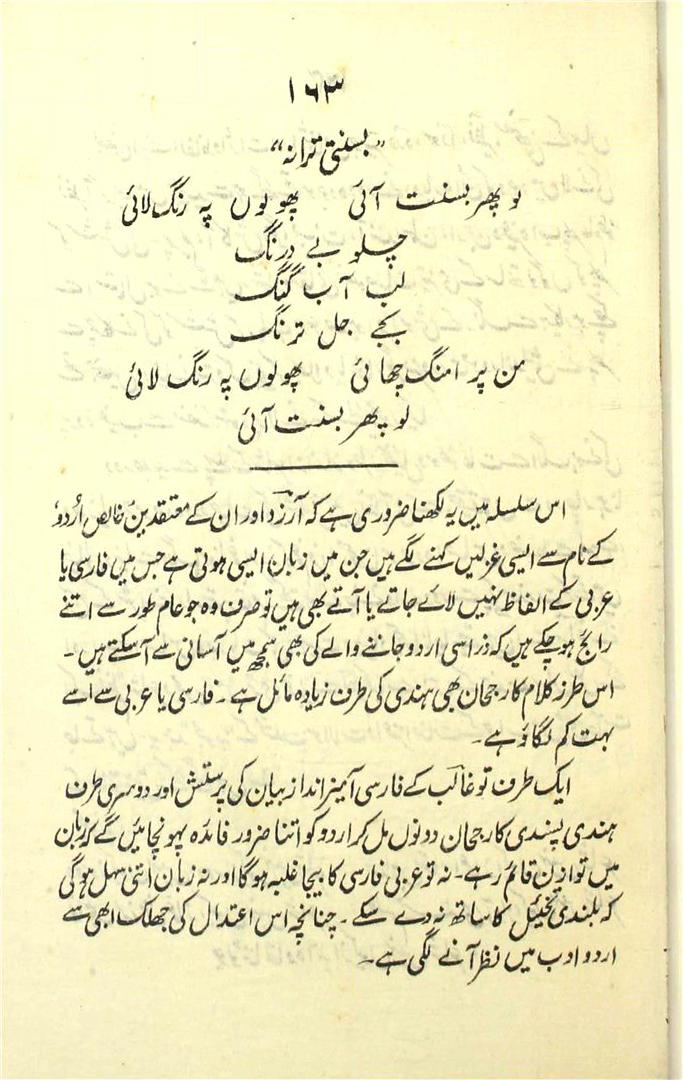 ۱۶۳
"بسنتی ترانہ"
لو پھر بسنت آئی پھولوں پہ رنگ لائی
چلو بے درنگ
لب آب گنگ
بجے جل ترنگ
من پر امنگ چھائی پھولوں پہ رنگ لائی
لو پھر بسنت آئی
اس سلسلہ میں یہ لکھنا ضروری ہے کہ آرزو اور ان کے معتقدین خالص اُردو
کے نام سے ایسی غزلیں کہنے لگے ہیں جن میں زبان ایسی ہوتی ہے جس میں فارسی یا
عربی کے الفاظ نہیں لائے جاتے یا آتے بھی ہیں تو صرف وہ جو عام طور سے اتنے
رائج ہو چکے ہیں کہ ذرا سی اردو جاننے والے کی بھی سمجھ میں آسانی سے آسکتے ہیں ۔
اس طرز کلام کا رجحان بھی ہندی کی طرف زیادہ مائل ہے ۔ فارسی یا عربی سے اسے
بہت کم لگاؤ ہے ۔
ایک طرف تو غالب کے فارسی آمیز انداز بیان کی پرستش اور دوسری طرف
ہندی پسندی کا رجحان دونوں مل کر اردو کو اتنا ضرور فائدہ پہونچائیں گے کہ زبان
میں توازن قائم رہے ۔ نہ تو عربی فارسی کا بیجا غلبہ ہوگا اور نہ زبان اتنی سہل ہوگی
کہ بلندی تخیل کا ساتھ نہ دے سکے ۔ چنانچہ اس اعتدال کی جھلک ابھی سے
اردو ادب میں نظر آنے لگی ہے ۔